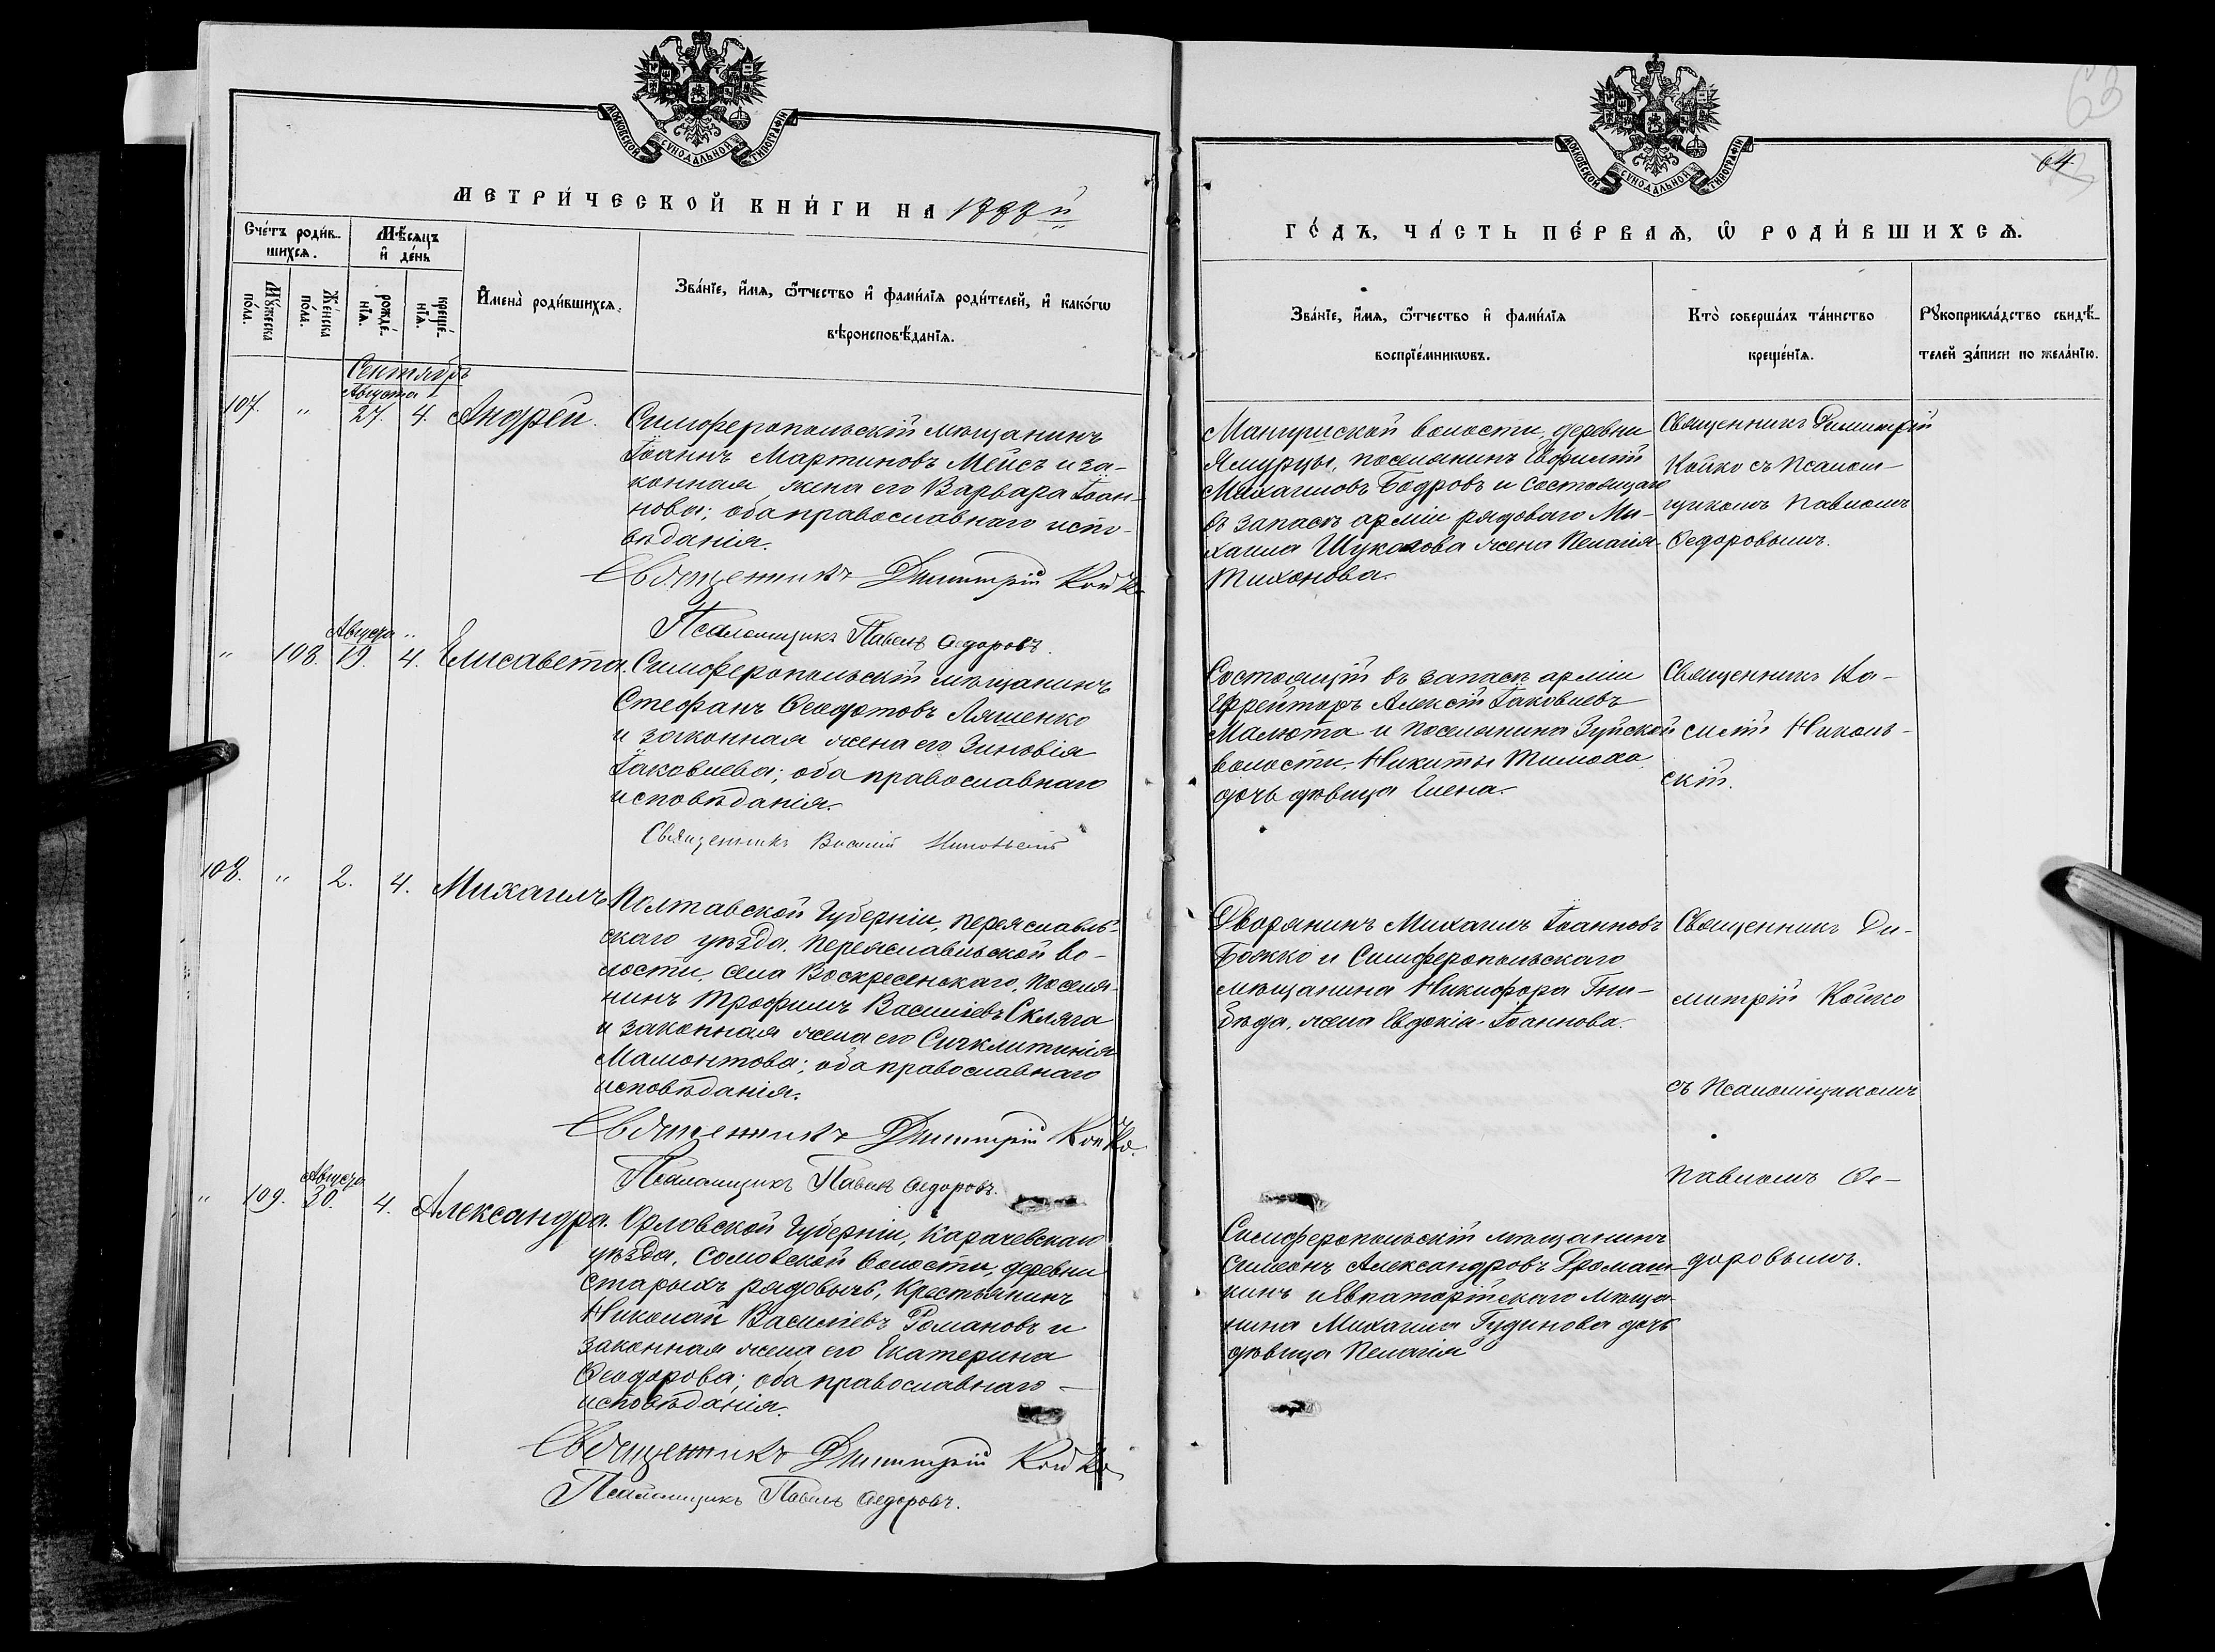 МОСКОВСКОЙ СѴНОДАЛЬНОЙ ТИПОГРАФІИ
МЕТРИ́ЧЕСКОЙ КНИ́ГИ НА 1888й
Сче́тъ роди́в-
шихся.
Мѣ́сяцъ
и҆ де́нь
Мꙋ́жеска
по́ла.
Же́нска
по́ла.
рожде́-
нїѧ.
креще́-
нїѧ.
И҆мена̀ роди́вшихсѧ.
Зва́нїе, и҆́мѧ, ѻ҆́тчество и҆ фами́лїѧ роди́телей, и҆ како́гѡ
вѣроисповѣ́данїѧ.
Сентябрь
Августа
107. " 27. 4. Андрей.
Симферопольскій мѣщанинъ
Іоаннъ Мартиновъ Мейсъ и за-
конная жена его Варвара Іоан-
нова; оба православнаго испо-
вѣданія.
Священникъ Димитрій Койко
Псаломщикъ Павелъ Ѳедоровъ.
Августа
" 108. 19. 4. Елисавета.
Симферопольскій мѣщанинъ
Стефанъ Ѳеодотовъ Ляшенко
и законная жена его Зиновія
Іаковлева; оба православнаго
исповѣданія.
Священникъ Василій Никольскій
108. " 2. 4. Михаилъ
Полтавской Губерніи, Переяславль-
скаго уѣзда, Переяславльской во-
лости, села Воскресенскаго, поселя-
нинъ Трофимъ Василіевъ Скляга
и законная жена его Сигклитикія
Мамонтова; оба православнаго
исповѣданія.
Священникъ Димитрій Койко.
Псаломщикъ Павелъ Ѳедоровъ.
Августа
" 109. 30. 4. Александра.
Орловской Губерніи, Карачевскаго
уѣзда, Сомовской волости, деревни
Старыхъ рядовычъ, Крестьянинъ
Николай Василіевъ Романовъ и
законная жена его Екатерина
Ѳеодорова; оба православнаго
исповѣданія.
Священникъ Димитрій Койко
Псаломщикъ Павелъ Ѳедоровъ.
63
64
МОСКОВСКОЙ СѴНОДАЛЬНОЙ ТИПОГРАФІИ
ГО́ДЪ, ЧА́СТЬ ПЕ́РВАѦ, Ѡ҆ РОДИ́ВШИХСѦ.
Зва́нїе, и҆́мѧ, ѻ҆́тчество и҆ фами́лїѧ
воспрїе́мникѡвъ.
Кто̀ соверша́лъ та́инство
креще́нїѧ.
Рꙋкоприкла́дство свидѣ́-
телей за́писи по жела́нїю.
Мангушской волости, деревни
Ямурцы, поселянинъ Евфимій
Михаиловъ Бодровъ и состоящаго
въ запасѣ арміи рядоваго Ми-
хаила Шукалова жена Пелагія
Тихонова.
Священникъ Димитрій
Койко съ Псалом-
щикомъ Павломъ
Ѳедоровымъ.
Состоящій въ запасѣ арміи
Ефрейторъ Алексій Іаковлевъ
Малюта и поселянина Зуйской
волости, Никиты Тимохо
дочь дѣвица Елена.
Священникъ Ва-
силій Николь-
скій.
Дворянинъ Михаилъ Іоанновъ
Божко и Симферопольскаго
мѣщанина Никифора Гни-
бѣда, жена Евдокія Іоаннова.
Священникъ Ди-
митрій Койко
съ Псаломщикомъ
Павломъ Ѳе-
доровымъ.
Симферопольскій мѣщанинъ
Симеонъ Александровъ Дромаш-
кинъ и Евпаторійскаго мѣща-
нина Михаила Гудинова дочь
дѣвица Пелагія